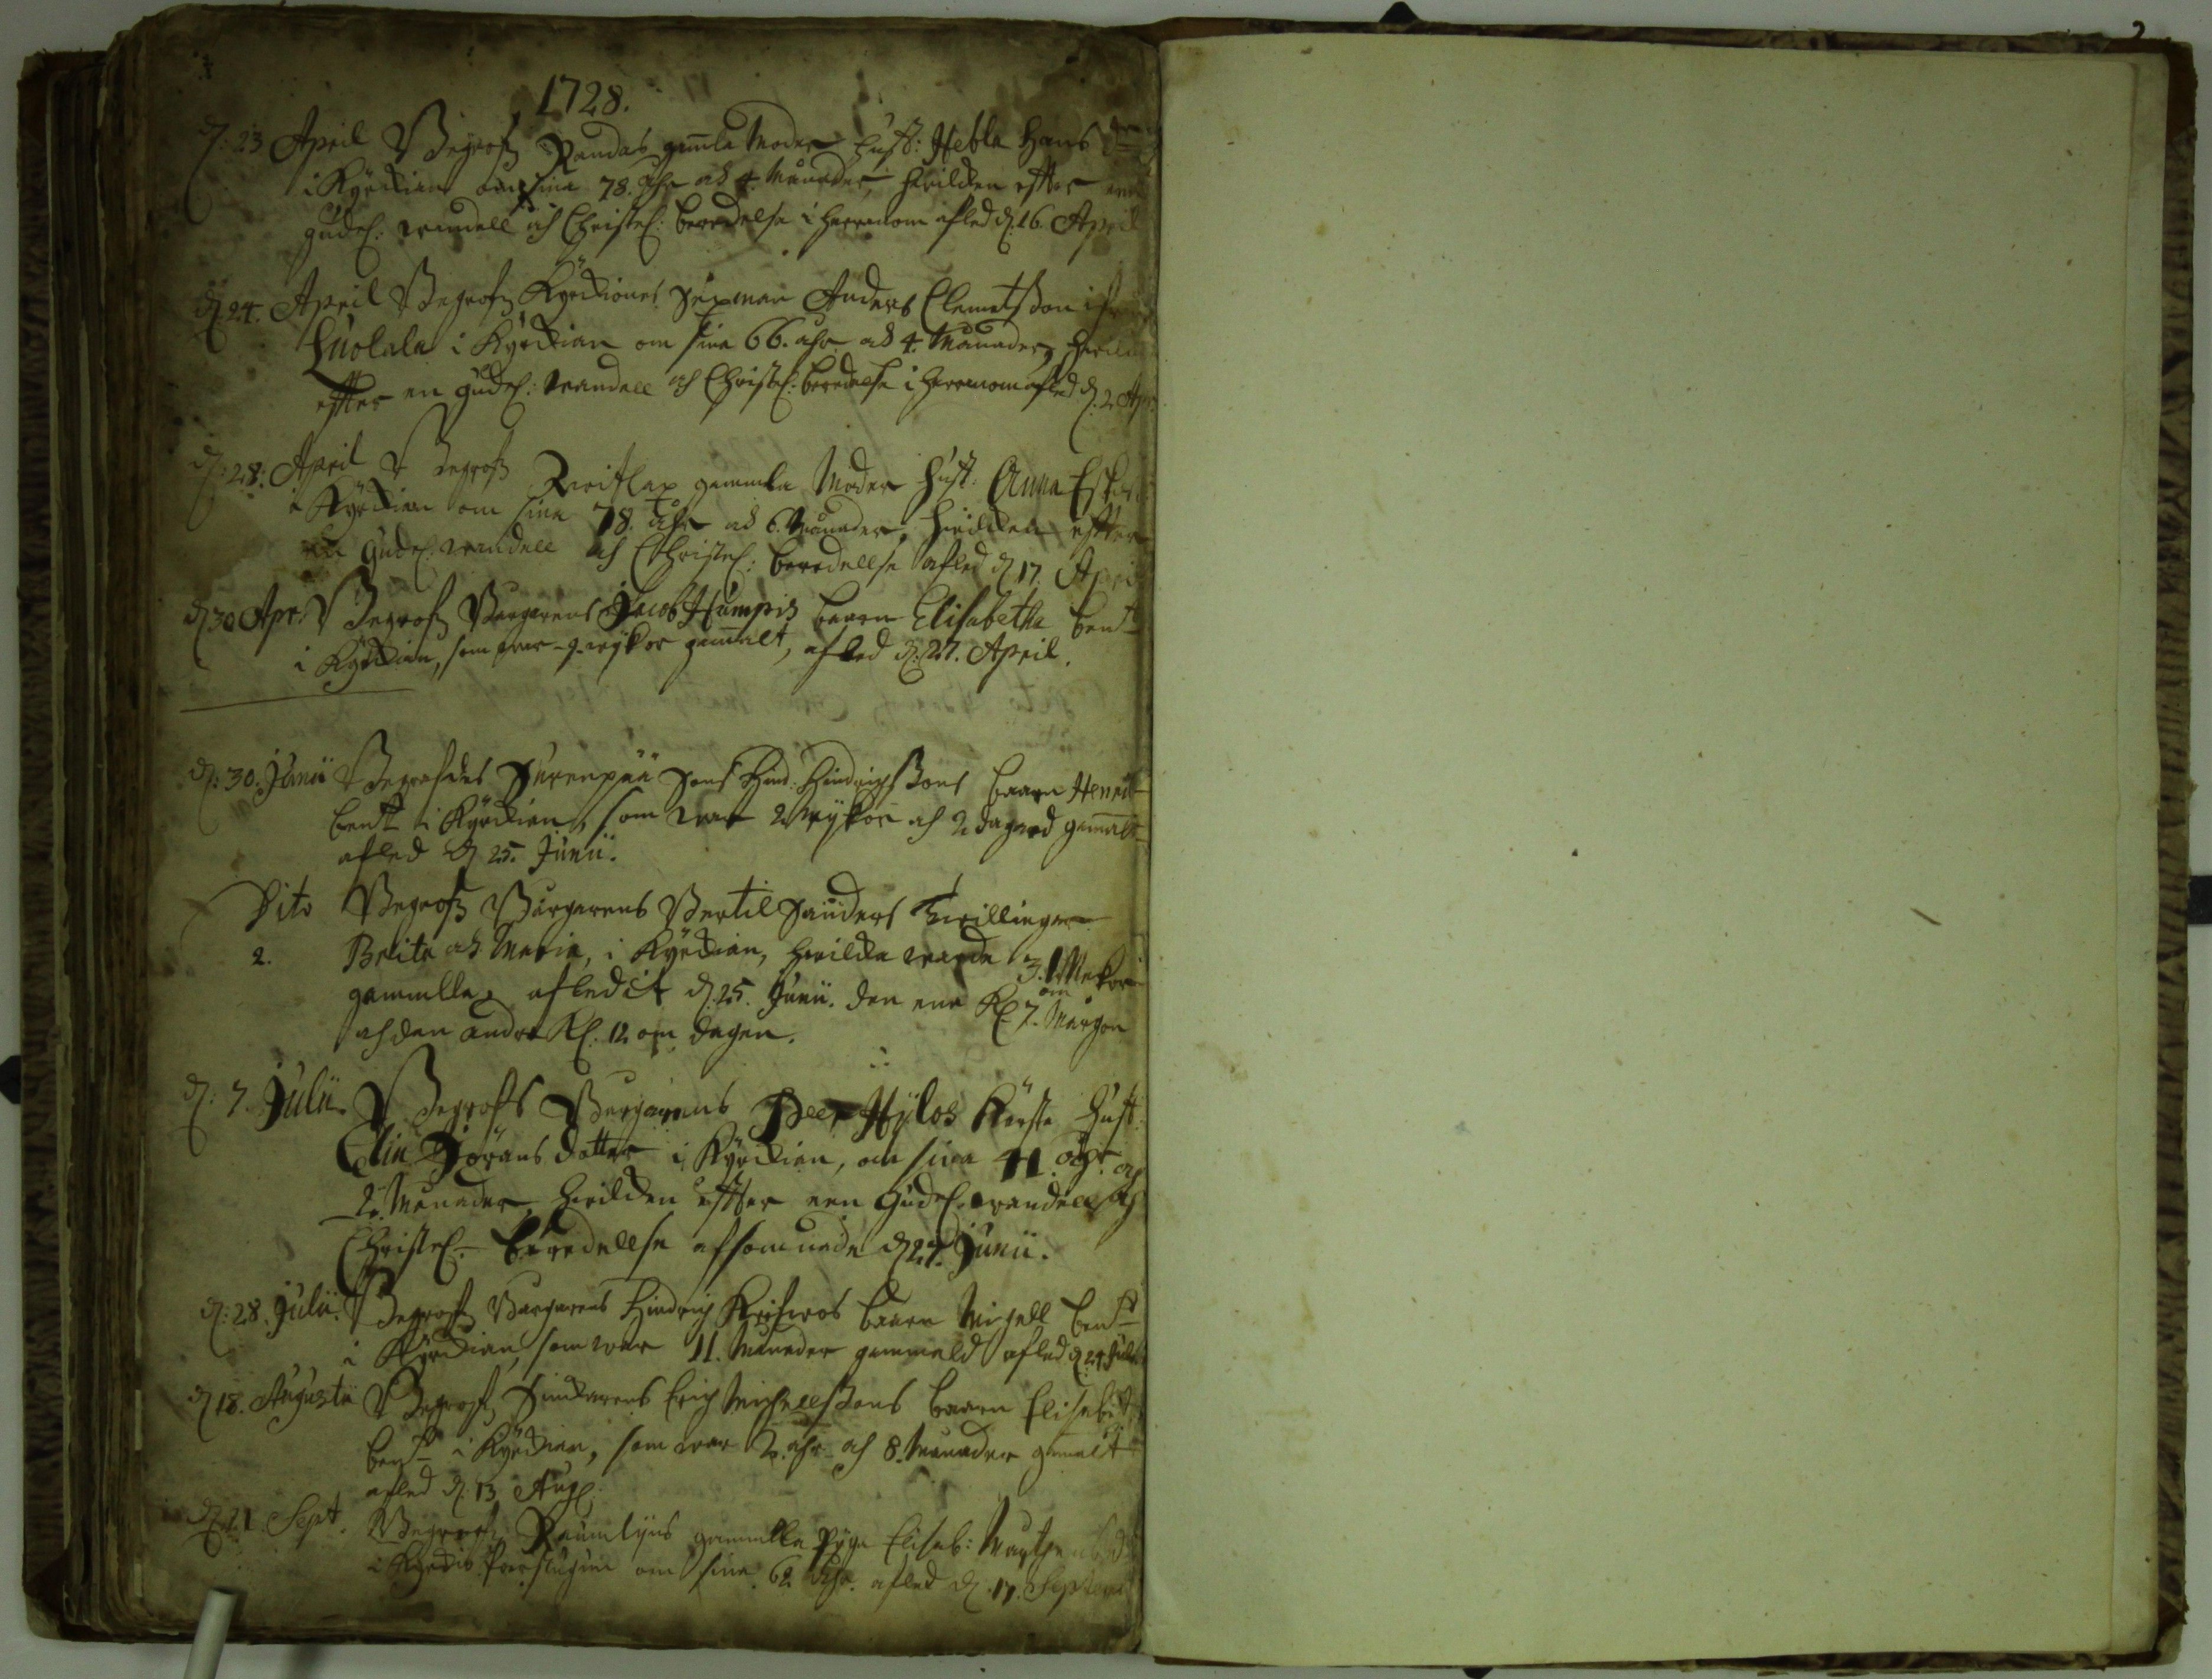 1728.
d: 23 April Begrofz Randas gamla Moder Hust: Hebla Hans dr
i Kyrkian om sina 78. åhr och 4. Månader, hvilken effter een
gudel: vandell och Christel: beredelse i Herranom afled d. 16. April
d. 24. April Begrofz Kyrkiones Sexman Anders Clemetsson ifrån
Luolala i Kyrkian om sina 66. åhr och 4. Månader, hvilken
effter en gudel: vandell och Christel: beredelse i Herranom afled d. 2 Apr:
d: 28: April Begrofz gammla Moder Hust: Anna
i Kyrkian om sina 78. åhr och 6. Månader, hvilken effter
en Gudel: vandell och Christel: beredellse afled d 17. April
d 30 Apr: Begrofz Borgarens Jacob Humpis barn Elisabetha ben:d
i Kyrkian, som var 9 wykor gammalt, afled d. 27. April.
d: 30. Junii Begrofdes Surenpää Sons Hind: Hindrichssons barn Henric
ben:d i Kyrkian, som war 2 wykor och 2 dagard gammalt
afled d 25. Junii.
Dito Begrofz Borgarens Bertil Sauders Twillingar
2. Brita och Maria, i Kyrkian, hvilka warde 3. Wekor
gammlla, afledit d. 25. Junii. den ena Kl. 7. om Morgon
och den andra Kl. 12 om dagen.
d: 7. Julii. Begrofs Borgarens Peer Hylos Kärsta Hust:
Elin Jörans dotter i Kyrkian, om sina 41. åhr och
2. Månader, hvilken effter een Gudel. vandell och
Christel. beredellse afsomnade d 27. Junii.
d: 28. Julii. Begrofz Borgarens Hindrich barn Michell ben:d
i Kyrkian, som war 11. Månader gammald afled d 24 Julii
d 18. Augusti Begrofz Erich Michellsons barn Elisabet
ben:d i Kyrkian, som war 2. åhr och 8. Månader gamalt
afled d. 13 Aug:
d. 21. Sept. Begrofz gammlla Pyga Elisab:
i Kyrkio om sina 62 åhr. afled d. 17. Septem